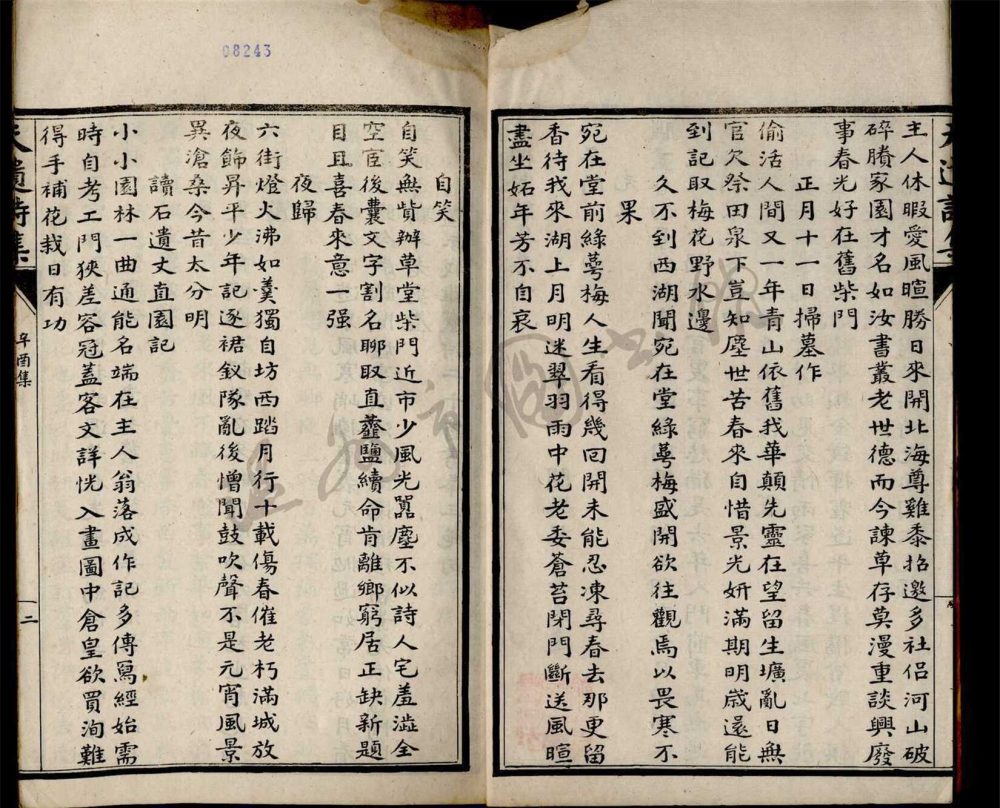 主人休暇愛風暄勝日來開北海尊雞黍招邀多社侶河山破
碎賸家園才名如汝書叢老世德而今諫草存莫漫重談興廢
事春光好在舊柴門
正月十一日掃墓作
偷活人間又一年青山依舊我華顛先靈在望留生壙亂日無
官欠祭田泉下豈知塵世苦春來自惜景光妍滿期明歲還能
到記取梅花野水邊
久不到西湖聞宛在堂綠萼梅盛開欲往觀焉以畏寒不
果
宛在堂前綠萼梅人生看得幾回開未能忍凍尋春去那更留
香待我來湖上月明迷翠羽雨中花老委蒼苔閉門斷送風暄
盡坐妬年芳不自哀
08243
自笑
自笑無貲辦草堂柴門近市少風光囂塵不似詩人宅羞澁全
空宦後囊文字割名聊取直虀鹽續命肯離鄉窮居正缺新題
目且喜春來意一强
夜歸
六街燈火沸如羹獨自坊西踏月行十載傷春催老朽滿城放
夜飾昇平少年記逐裙釵隊亂後憎聞鼓吹聲不是元宵風景
異滄桑今昔太分明
讀石遺丈直園記
小小園林一曲通能名端在主人翁落成作記多傳寫經始需
時自考工門狹差容冠蓋客文詳恍入畫圖中倉皇欲買洵難
得手補花栽日有功
遺詩集
辛酉集
二